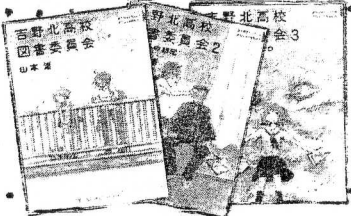 吉野北高校
図書委員会
山本渚
吉野北高校
書委員会2
野北高校
会3